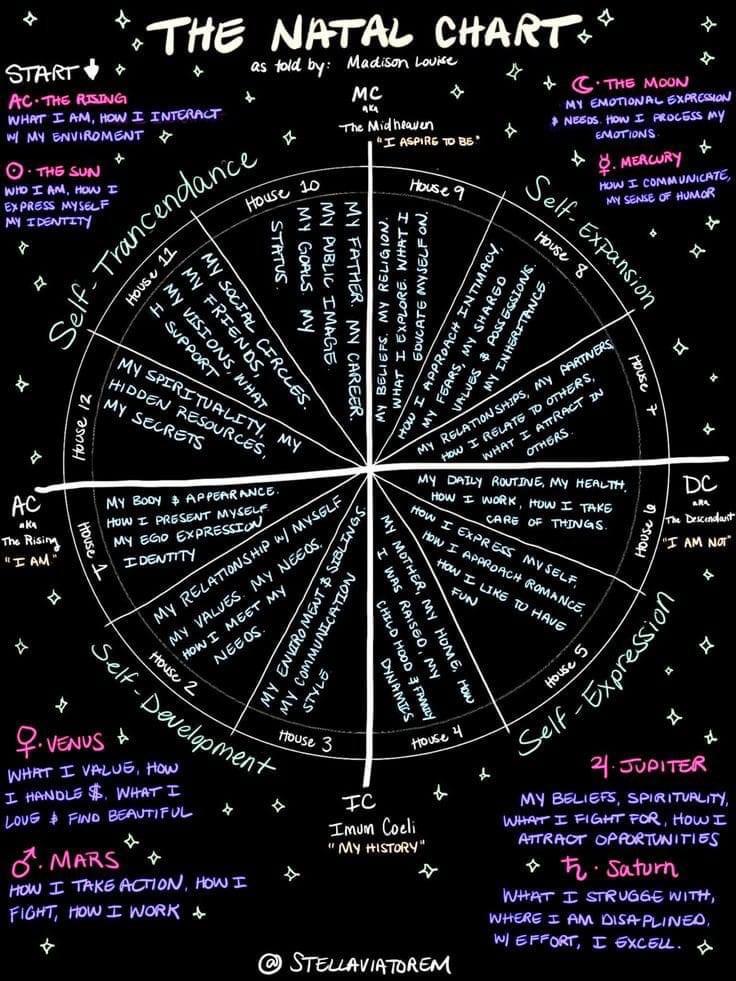 THE NATAL CHART
as told by: Madison Louise
START
AC · THE RISING
WHAT I AM, HOW I INTERACT
W/ MY ENVIROMENT
☉ · THE SUN
WHO I AM, HOW I
EXPRESS MYSELF
MY IDENTITY
MC
aka
The Midheaven
"I ASPIRE TO BE"
☾ · THE MOON
MY EMOTIONAL EXPRESSION
& NEEDS. HOW I PROCESS MY
EMOTIONS.
☿ · MERCURY
HOW I COMMUNICATE,
MY SENSE OF HUMOR
Self-Trancendance
Self-Expansion
House 10
MY FATHER. MY CAREER.
MY PUBLIC IMAGE.
MY GOALS. MY
STATUS.
House 9
MY BELIEFS. MY RELIGION.
WHAT I EXPLORE. WHAT I
EDUCATE MYSELF ON.
House 11
MY SOCIAL CIRCLES.
MY FRIENDS,
MY VISIONS, WHAT
I SUPPORT
House 8
HOW I APPROACH INTIMACY.
MY FEARS, MY SHARED
VALUES & POSSESSIONS.
MY INHERITANCE
House 12
MY SPIRITUALITY, MY
HIDDEN RESOURCES,
MY SECRETS
House 7
MY RELATIONSHIPS, MY PARTNERS
HOW I RELATE TO OTHERS,
WHAT I ATTRACT IN
OTHERS.
AC
aka
The Rising
"I AM"
House 1
MY BODY & APPEARANCE.
HOW I PRESENT MYSELF
MY EGO EXPRESSION
IDENTITY
House 6
MY DAILY ROUTINE, MY HEALTH,
HOW I WORK, HOW I TAKE
CARE OF THINGS.
DC
aka
The Descendant
"I AM NOT"
House 2
MY RELATIONSHIP W/ MYSELF
MY VALUES. MY NEEDS.
HOW I MEET MY
NEEDS.
House 5
HOW I EXPRESS MYSELF,
HOW I APPROACH ROMANCE.
HOW I LIKE TO HAVE
FUN
House 3
MY ENVIROMENT & SIBLINGS
MY COMMUNICATION
STYLE
House 4
MY MOTHER, MY HOME, HOW
I WAS RAISED, MY
CHILDHOOD & FAMILY
DYNAMICS
Self-Development
Self-Expression
IC
Imum Coeli
"MY HISTORY"
♀ · VENUS
WHAT I VALUE, HOW
I HANDLE $, WHAT I
LOVE & FIND BEAUTIFUL
♂ · MARS
HOW I TAKE ACTION, HOW I
FIGHT, HOW I WORK
♃ · JUPITER
MY BELIEFS, SPIRITUALITY,
WHAT I FIGHT FOR, HOW I
ATTRACT OPPORTUNITIES
♄ · Saturn
WHAT I STRUGGE WITH,
WHERE I AM DISAPLINED,
W/ EFFORT, I EXCELL.
@ STELLAVIATOREM